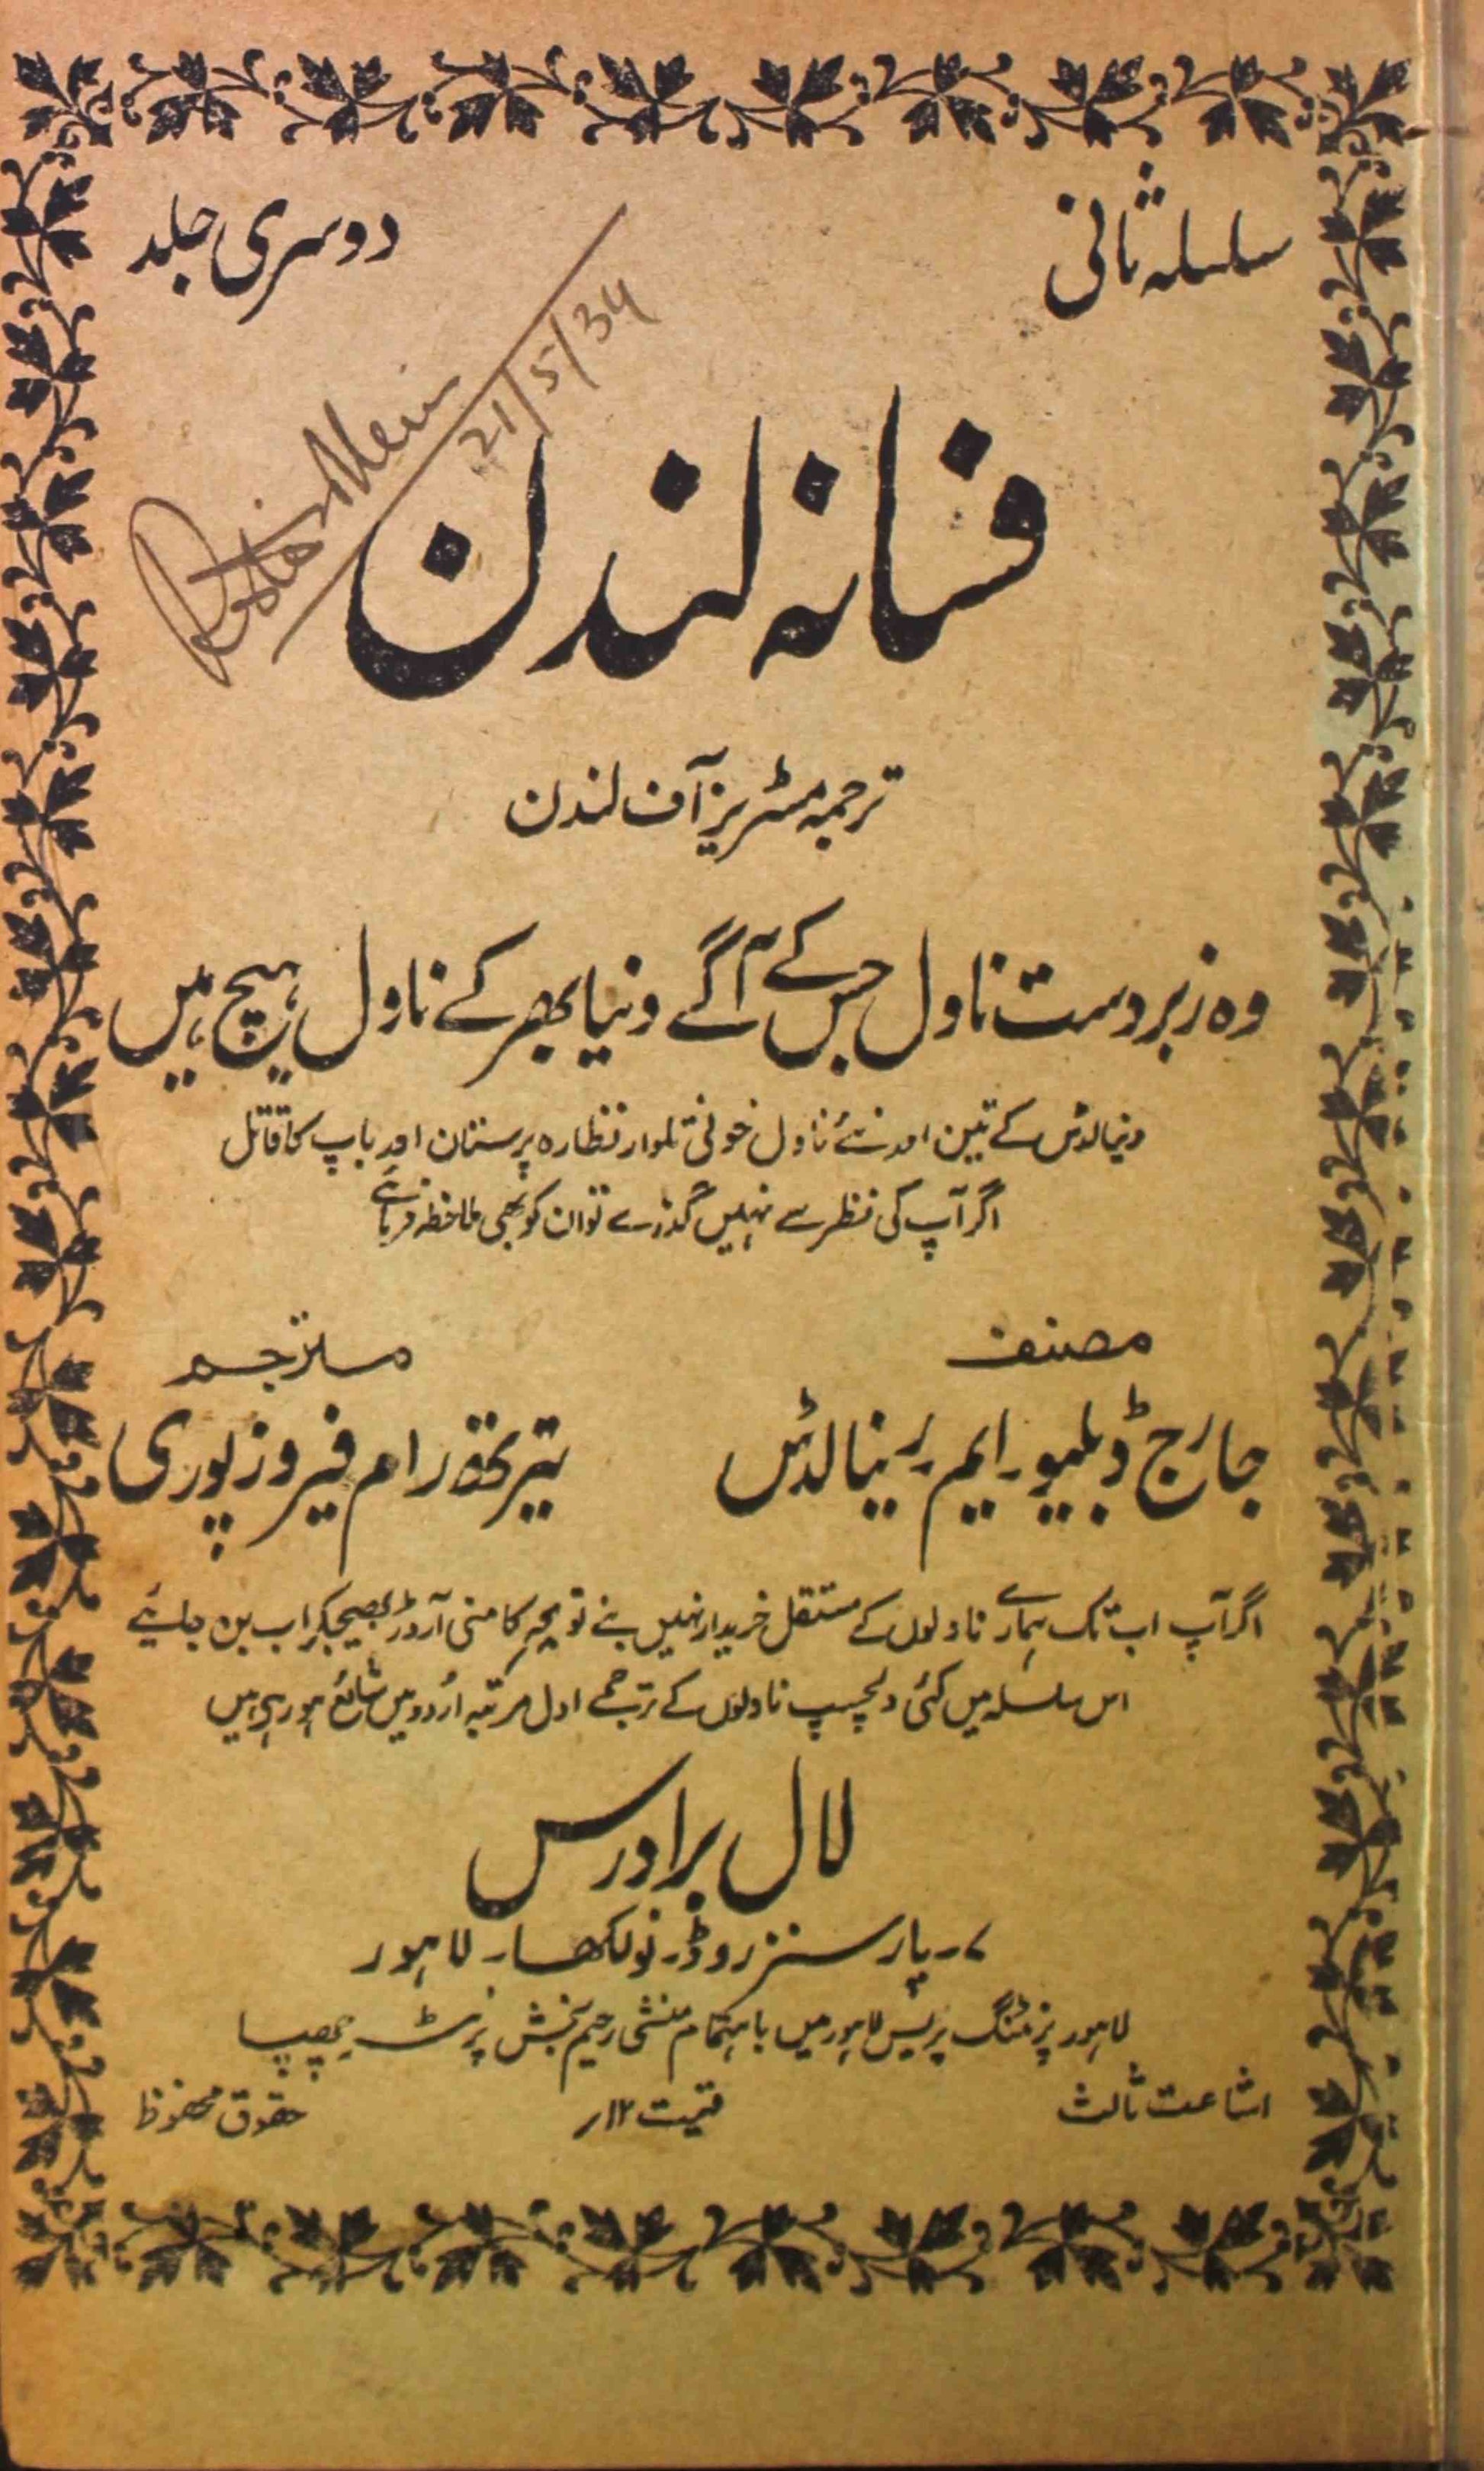 سلسلہ ثانی
دوسری جلد
21/5/34
فسانہ لندن
ترجمہ مسٹریز آف لندن
وہ زبردست ناول جس کے آگے دنیا بھر کے ناول ہیچ ہیں
رینالڈس کے تین اور نئے ناول خونی تلوار نظارہ پرستان اور باپ کا قاتل
اگر آپ کی نظر سے نہیں گذرے تو ان کو بھی ملاحظہ فرمائیے
مصنف
مترجم
جارج ڈبلیو۔ ایم۔ رینالڈس
تیرتھ رام فیروزپوری
اگر آپ اب تک ہمارے ناولوں کے مستقل خریدار نہیں بنے تو کا منی آرڈر بھیجکر اب بن جائیے
اس سلسلہ میں کئی دلچسپ ناولوں کے ترجمے اول مرتبہ اُردو میں شائع ہو رہے ہیں
لال برادرس
۷۔ پارسنز روڈ۔ نولکھا۔ لاہور
لاہور پرنٹنگ پریس لاہور میں باہتمام منشی رحیم بخش پرنٹر چھپا
اشاعت ثالث
قیمت ۱۲؍
حقوق محفوظ